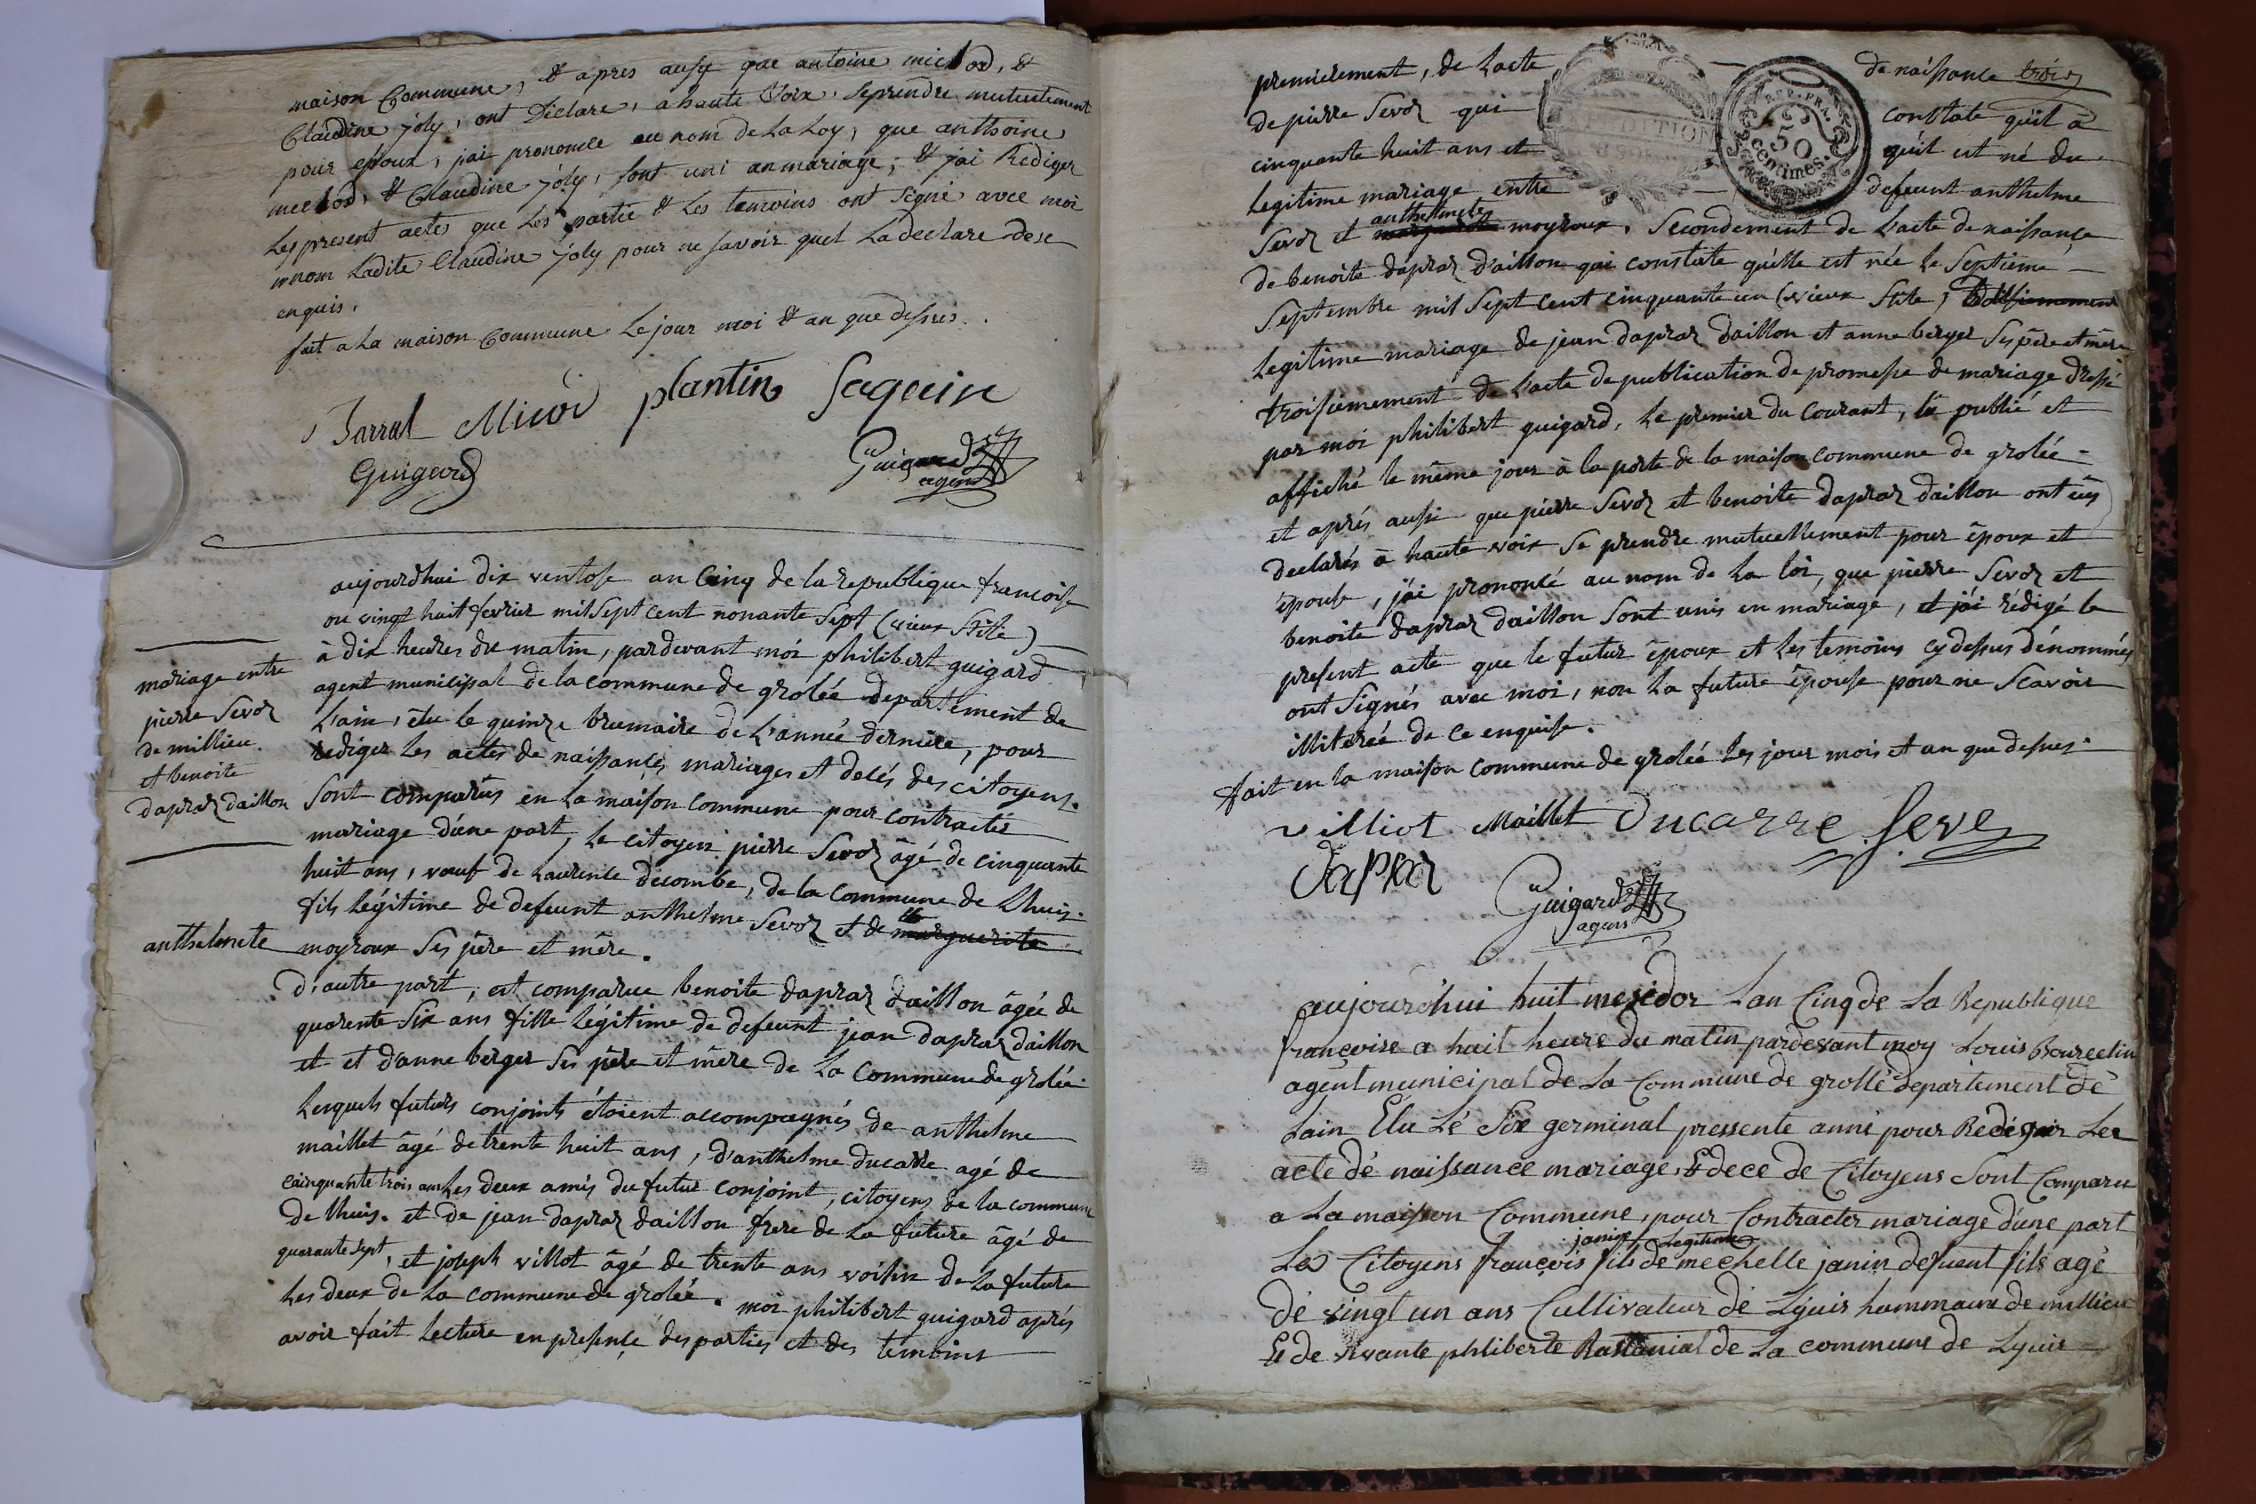 maison Commune, & apres ausy que antoine miclod, &
Claudine joly, ont Déclare, a haute Voix, seprendre mutuelement
pour epoux, jai prononcé au nom de La Loy, que anthoine
mielod, & Claudine joly, sont uni an mariage, & jai Rediger
Les present actes que Les partie & Les temoins ont signé avec moi
non Ladite Claudine joly pour ne savoir quel La declare de se
enquis.
fait a La maison Commune Le jour moi & an que desus.
Barral Miclod plantin Seguin
Guigard Guigard
agent
aujourdhui dix ventose an Cinq de la republique francoise
ou vingt huit fevrier mil Sept cent nonante Sept (vieux Stile)
à dix heures du matin, pardevant moi philibert guigard
agent municipal de la commune de grolée departement de
L'ain, élu le quinze brumaire de L'année derniere, pour
rediger Les actes de naissances, mariages et decés des citoyens.
Sont comparûs en La maison Commune pour contracter
mariage d'une part, Le citoyen pierre Sevoz âgé de cinquante
huit ans, veuf de Laurence décombe, de la Commune de Lhuis.
fils légitime de defeunt anthelme Sevoz et de marguerite
moyroux Ses père et mère.
mariage entre
pierre Sevoz
de millieu.
et benoite
dapraz daillon
anthelmete
D'autre part, est comparue benoite dapraz daillon âgée de
quarente Six ans fille légitime de defeunt jean dapraz daillon
et et d'anne berger Ses père et mère de La Commune de grolée.
Lesquels futurs conjoints étoient accompagnés de anthelme
maillet âgé de trente huit ans, d'anthelme ducarre agé de
cainquante trois ans Les deux amis du futur conjoint, citoyens de la commune
de Lhuis. et de jean dapraz daillon frere de La future âgé de
quarante sept, et joseph villot âgé de trente ans voisin de La future
Les deux de La commune de grolée. moi philibert guigard aprés
avoir fait Lecture en presence des parties et des temoins
premierement, de L'acte de naissance
de pierre Sevoz qui constate qu'il a
cinquante huit ans et qu'il est né du
Legitime mariage entre defeunt anthelme
anthelmete
Sevoz et marguerite moyroux. Secondement de L'acte de naissance
de benoite dapraz d'aillon qui constate qu'elle est née le Septieme
Septembre mil Sept cent cinquante un (vieux Stile)
Legitime mariage de jean dapraz daillon et anne berger Ses père et mère
troisiemement de L'acte de publication de promesse de mariage dressé
par moi philibert guigard, Le premier du Courant, publié et
affiché le même jour à la porte de la maison commune de grolée
et aprés aussi que pierre Sevoz et benoite dapraz daillon ont
declarés à haute voix Se prendre mutuellement pour époux et
épouse, j'ai prononcé au nom de La loi, que pierre Sevoz et
benoite dapraz daillon Sont unis en mariage, et j'ai rédigé le
present acte que le futur époux et Les temoins cy dessus dénommés
ont Signés avec moi, non La future épouse pour ne Scavoir
illiterée de ce enquise.
fait en la maison commune de grolée Les jour mois et an que dessus.
villiot Maillet Ducarre Seve
dapraz
Guigard
agent
REP. FRA.
50
centimes.
aujourdhui huit mesidor Lan Cinq de La Republique
françoise a huit heure du matin pardevant moy Louis Bourcelin
agent municipal de La Commune de grollé departement de
Lain Elu Le Six germinal pressente anné pour Redigair Les
acte de naissance mariage & dece de Citoyens sont Comparu
a La maison Commune, pour Contracter mariage d'une part
janin Legitime
Les Citoyens françois fils de mechelle janin defuent fils agé
de vingt un ans Cultivateur de Lyuis hammaux de millieu
& de vivante phliberte de La commune de Lyuis